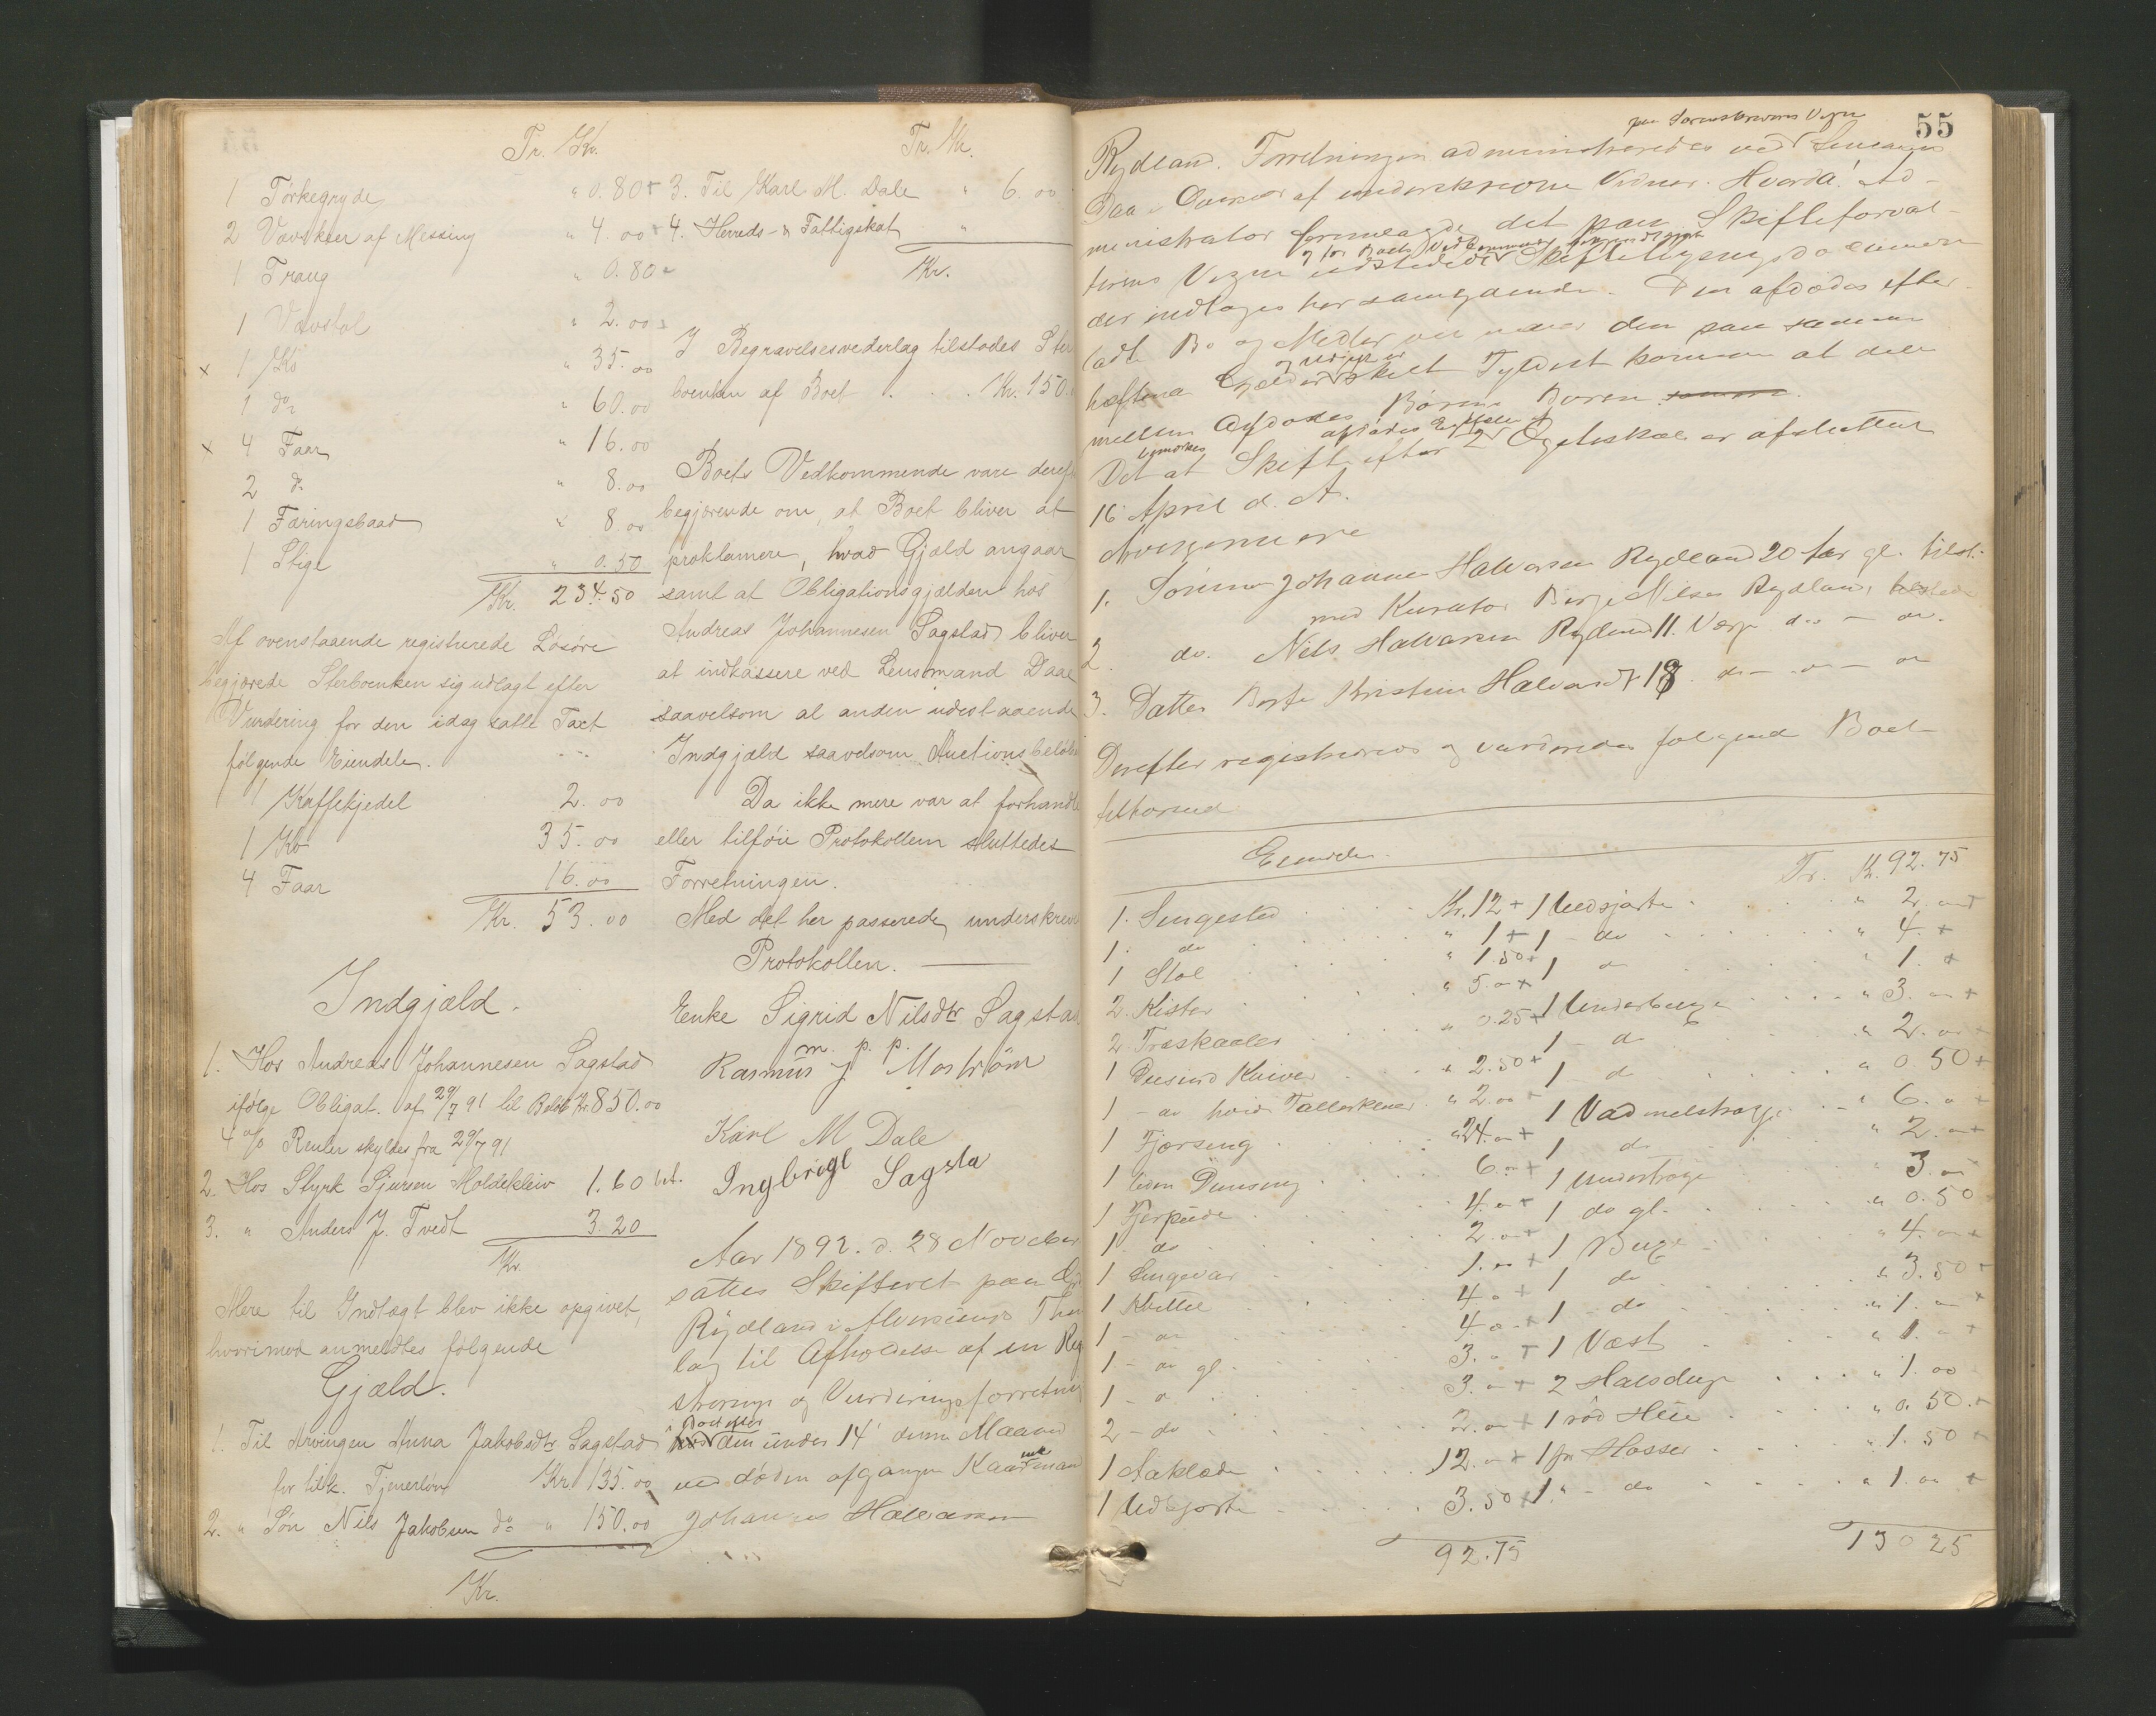 Tr. Kr.
1 Tørkegryde " 0.80 +
2 Vævskeer af Messing " 4.00 +
1 Traug " 0.80
1 Vævstol " 2.00
x 1 Ko " 35.00
1 do " 60.00
x 4 Faar " 16.00
2 do " 8.00
1 Færingsbaad " 8.00
1 Stige " 0.50
Kr. 234.50
Af ovenstaaende registrerede Løsøre
begjærede Sterboenken sig udlagt efter
Vurdering for den idag satte Taxt
følgende Eiendele.
1 Kaffekjedel 2.00
1 Ko 35.00
4 Faar 16.00
Kr. 53.00
Indgjæld.
1. Hos Andreas Johannesen Sagstad
ifølge Obligat. af 29/7 91 til Beløb Kr. 850.00
4 % Renter skyldes fra 29/7 91
2. Hos Styrk Sjursen Moldekleiv 1.60 bet.
3. " Anders J. Tvedt 3.20
Kr.
Mere til Indtægt blev ikke opgivet,
hvorimod anmeldtes følgende
Gjæld.
1. Til Arvingen Anna Jakobsdtr Sagstad
for tilk. Tjenerløn Kr. 135.00
2. " Søn Nils Jakobsen do " 150.00
Kr.
Tr. Kr.
3. Til Karl M. Dale " 6.00
4. Herreds- & Fattigskat "
Kr.
I Begravelsesvederlag tilstodes Ster
boenken af Boet . . . Kr. 150.
Boets Vedkommende vare deref
begjærende om, at Boet bliver at
proklamere, hvad Gjæld angaar
samt at Obligationsgjælden hos
Andreas Johannesen Sagstad bliver
at indkassere ved Lensmand Daae
saavelsom al anden udestaaende
Indgjæld saavelsom Auctionsbeløb
Da ikke mere var at forhandle
eller tilføie Protokollen sluttedes
Forretningen.
Med det her passerede, underskrev
Protokollen.
Enke Sigrid Nilsdtr Sagstad
m. p. p.
Rasmus J Mostrøm
Karl M Dale
Ingbrigt Sagsta
Aar 1892. d. 28 November
sattes Skifteret paa
Rydland i Alversunds Thin
lag til Afholdelse af en Reg
strerings og Vurderingsforretning
i Boet efter
den under 14' denne Maaned
ved døden afgangne Kaarmand
Johannes Halvarsen
55
paa Sorenskriverens Vegne
Rydland. Forretningen administreredes ved Lensmand
Daae i Overvær af underskrevne Vidner. Hvorda! Ad-
ministrator fremlagde det paa Skifteforval-
terens Vegne udstedede
der indtages her samgaaende. Den afdødes efter-
ladte Bo og Midler
skilt Tyldest kommer at dele
mellem Afdødes Børn
bemærkes
Det at Skifte efter Egteskab er afsluttet
16 April d. A.
Arvingerne ere
1. Sønnen Johannes Halvarsen Rydland 20 Aar gl. tilst.
med Kurator Børge Nilsen Rydland,
2. do. Nils Halvarsen Rydland 11. Verge do - do.
3. Datter Kristine Halvarsdtr 18 do - do - do
Derefter registreredes og vurderedes følgende Boet
tilhørende
Eiendele.
1. Sengested . . . . Kr. 12 +
1. do " 1 +
1 Stol " 1.50 +
2. Kister " 5.00 +
2. Træskaaler " 0.25 +
1 Dusind Knive " 2.50 +
1 - do hvide Tallerkener " 2.00 +
1 Fjærseng " 24.00 +
1 liden Dunseng 6.00 +
1 Fjerpude 4.00 +
1. do 2.00 +
1 Sengevar 1.00 +
1 Kvittel 4.00 +
1 - do 4.00 +
1 - do gl. 3.00 +
1 - do 3.00 +
2 - do 2.00 +
1 Aaklæde 12.00 +
1 Uldskjorte 3.50 +
92.75
Tr. Kr. 92.75
1 Uldskjorte " 2.00 +
1 - do " 4. +
1 do " 1. +
1 Underbuxe " 3.00 +
1 - do " 2.00 +
1 do " 0.50 +
1 Vadmelstrøje " 6.00 +
1 do " 2.00 +
1 Undertrøje " 3.00
1 do gl. " 0.50
1 Buxe " 4.00 +
1 do " 3.50 +
1 - do " 1.00 +
1 Vest " 1.00 +
2 Halsduge " 1.00
1 rød Hue " 0.50 +
1 pr Hoser " 1.50 +
1 " - do " 1.00 +
130 25